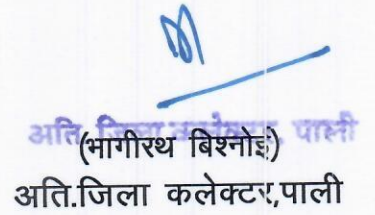 अति. जिला कलेक्टर, पाली
(भागीरथ बिश्नोई)
अति.जिला कलेक्टर,पाली